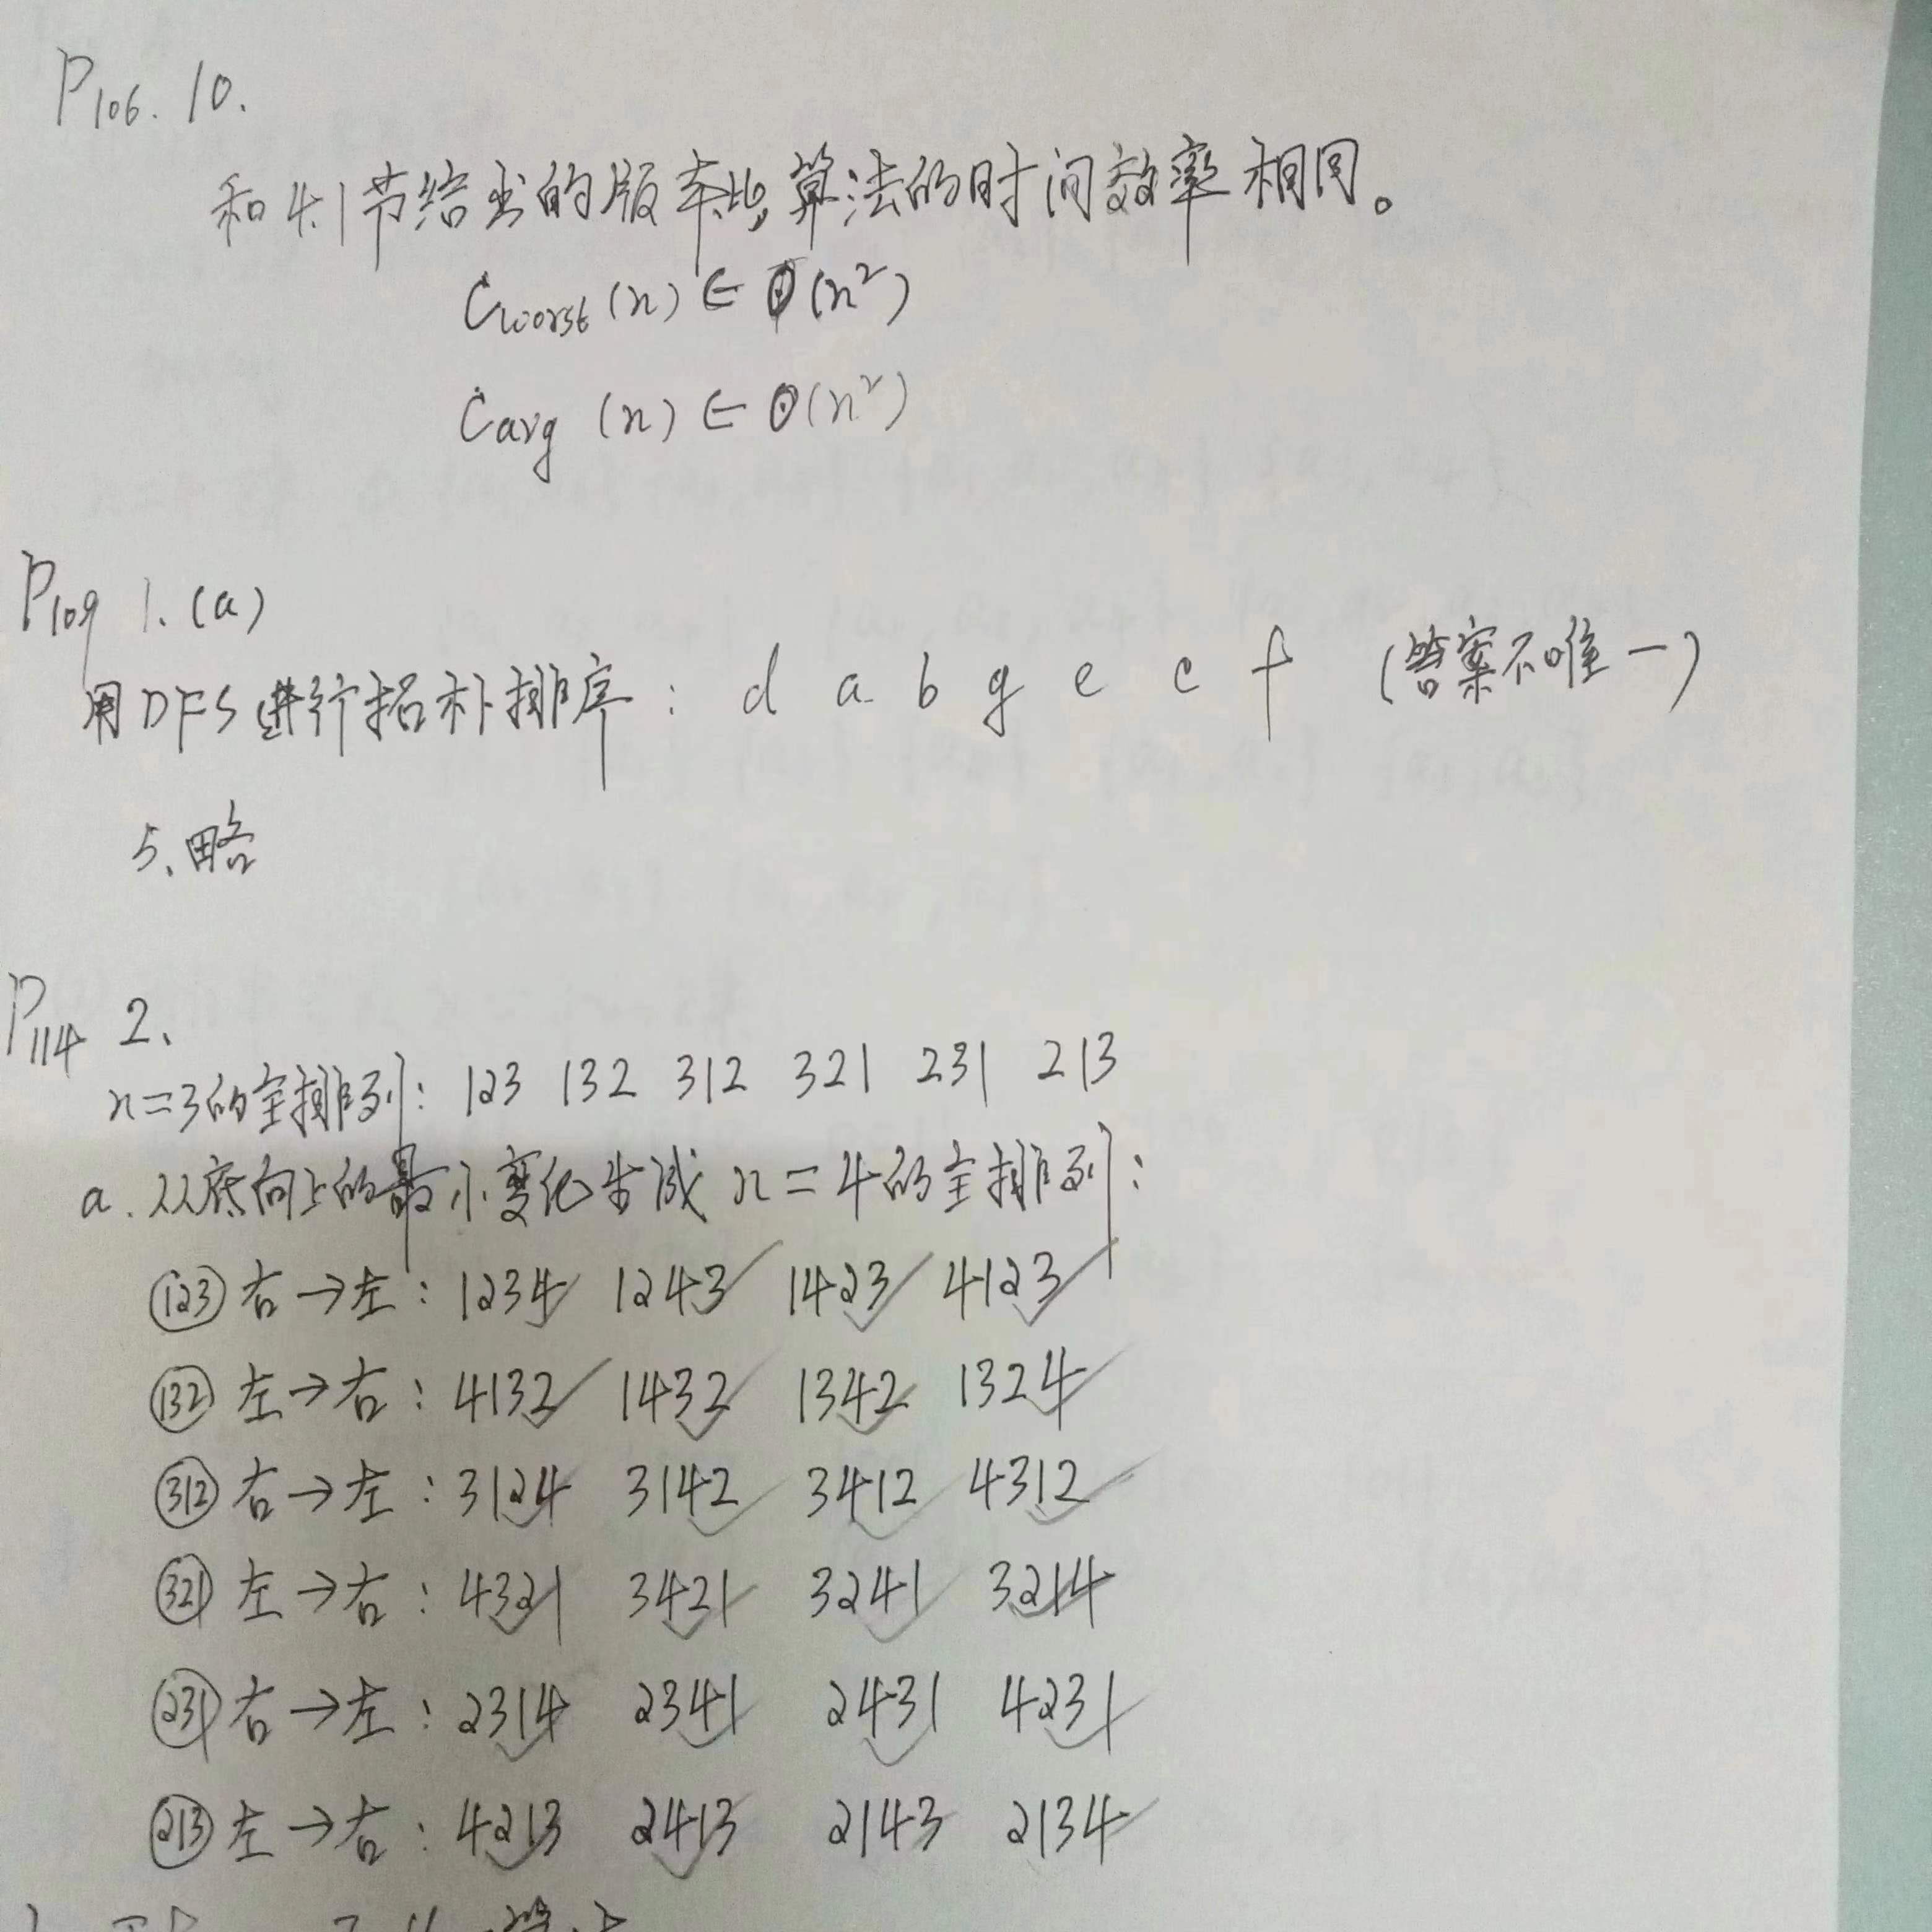 P106. 10.
和4.1节给出的版本比,算法的时间效率相同。
Cworst(n) ∈ Θ(n²)
Cavg (n) ∈ Θ(n²)
P109 1. (a)
用DFS进行拓朴排序: d a b g e c f (答案不唯一)
5、略
P114 2、
n=3的全排列: 123 132 312 321 231 213
a. 从底向上的最小变化生成n=4的全排列:
(123) 右→左: 1234 1243 1423 4123
(132) 左→右: 4132 1432 1342 1324
(312) 右→左: 3124 3142 3412 4312
(321) 左→右: 4321 3421 3241 3214
(231) 右→左: 2314 2341 2431 4231
(213) 左→右: 4213 2413 2143 2134